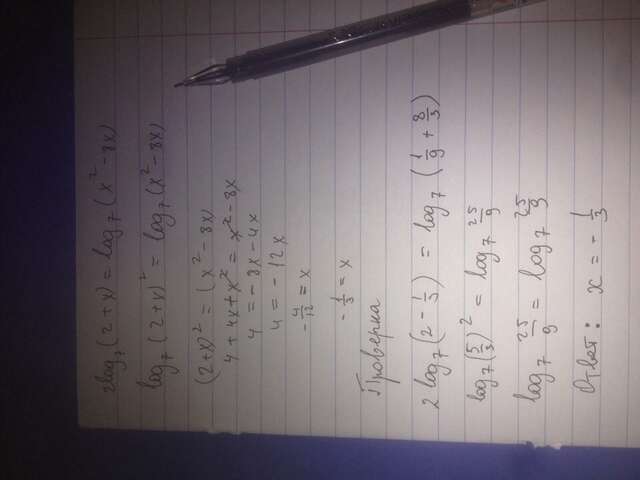 2log₇(2+x) = log₇(x² - 8x)
log₇(2+x)² = log₇(x² - 8x)
(2+x)² = (x² - 8x)
4 + 4x + x² = x² - 8x
4 = -8x - 4x
4 = -12x
-4/12 = x
-1/3 = x
Проверка
2 log₇(2 - 1/3) = log₇(1/9 + 8/3)
log₇(5/3)² = log₇ 25/9
log₇ 25/9 = log₇ 25/9
Ответ: x = -1/3